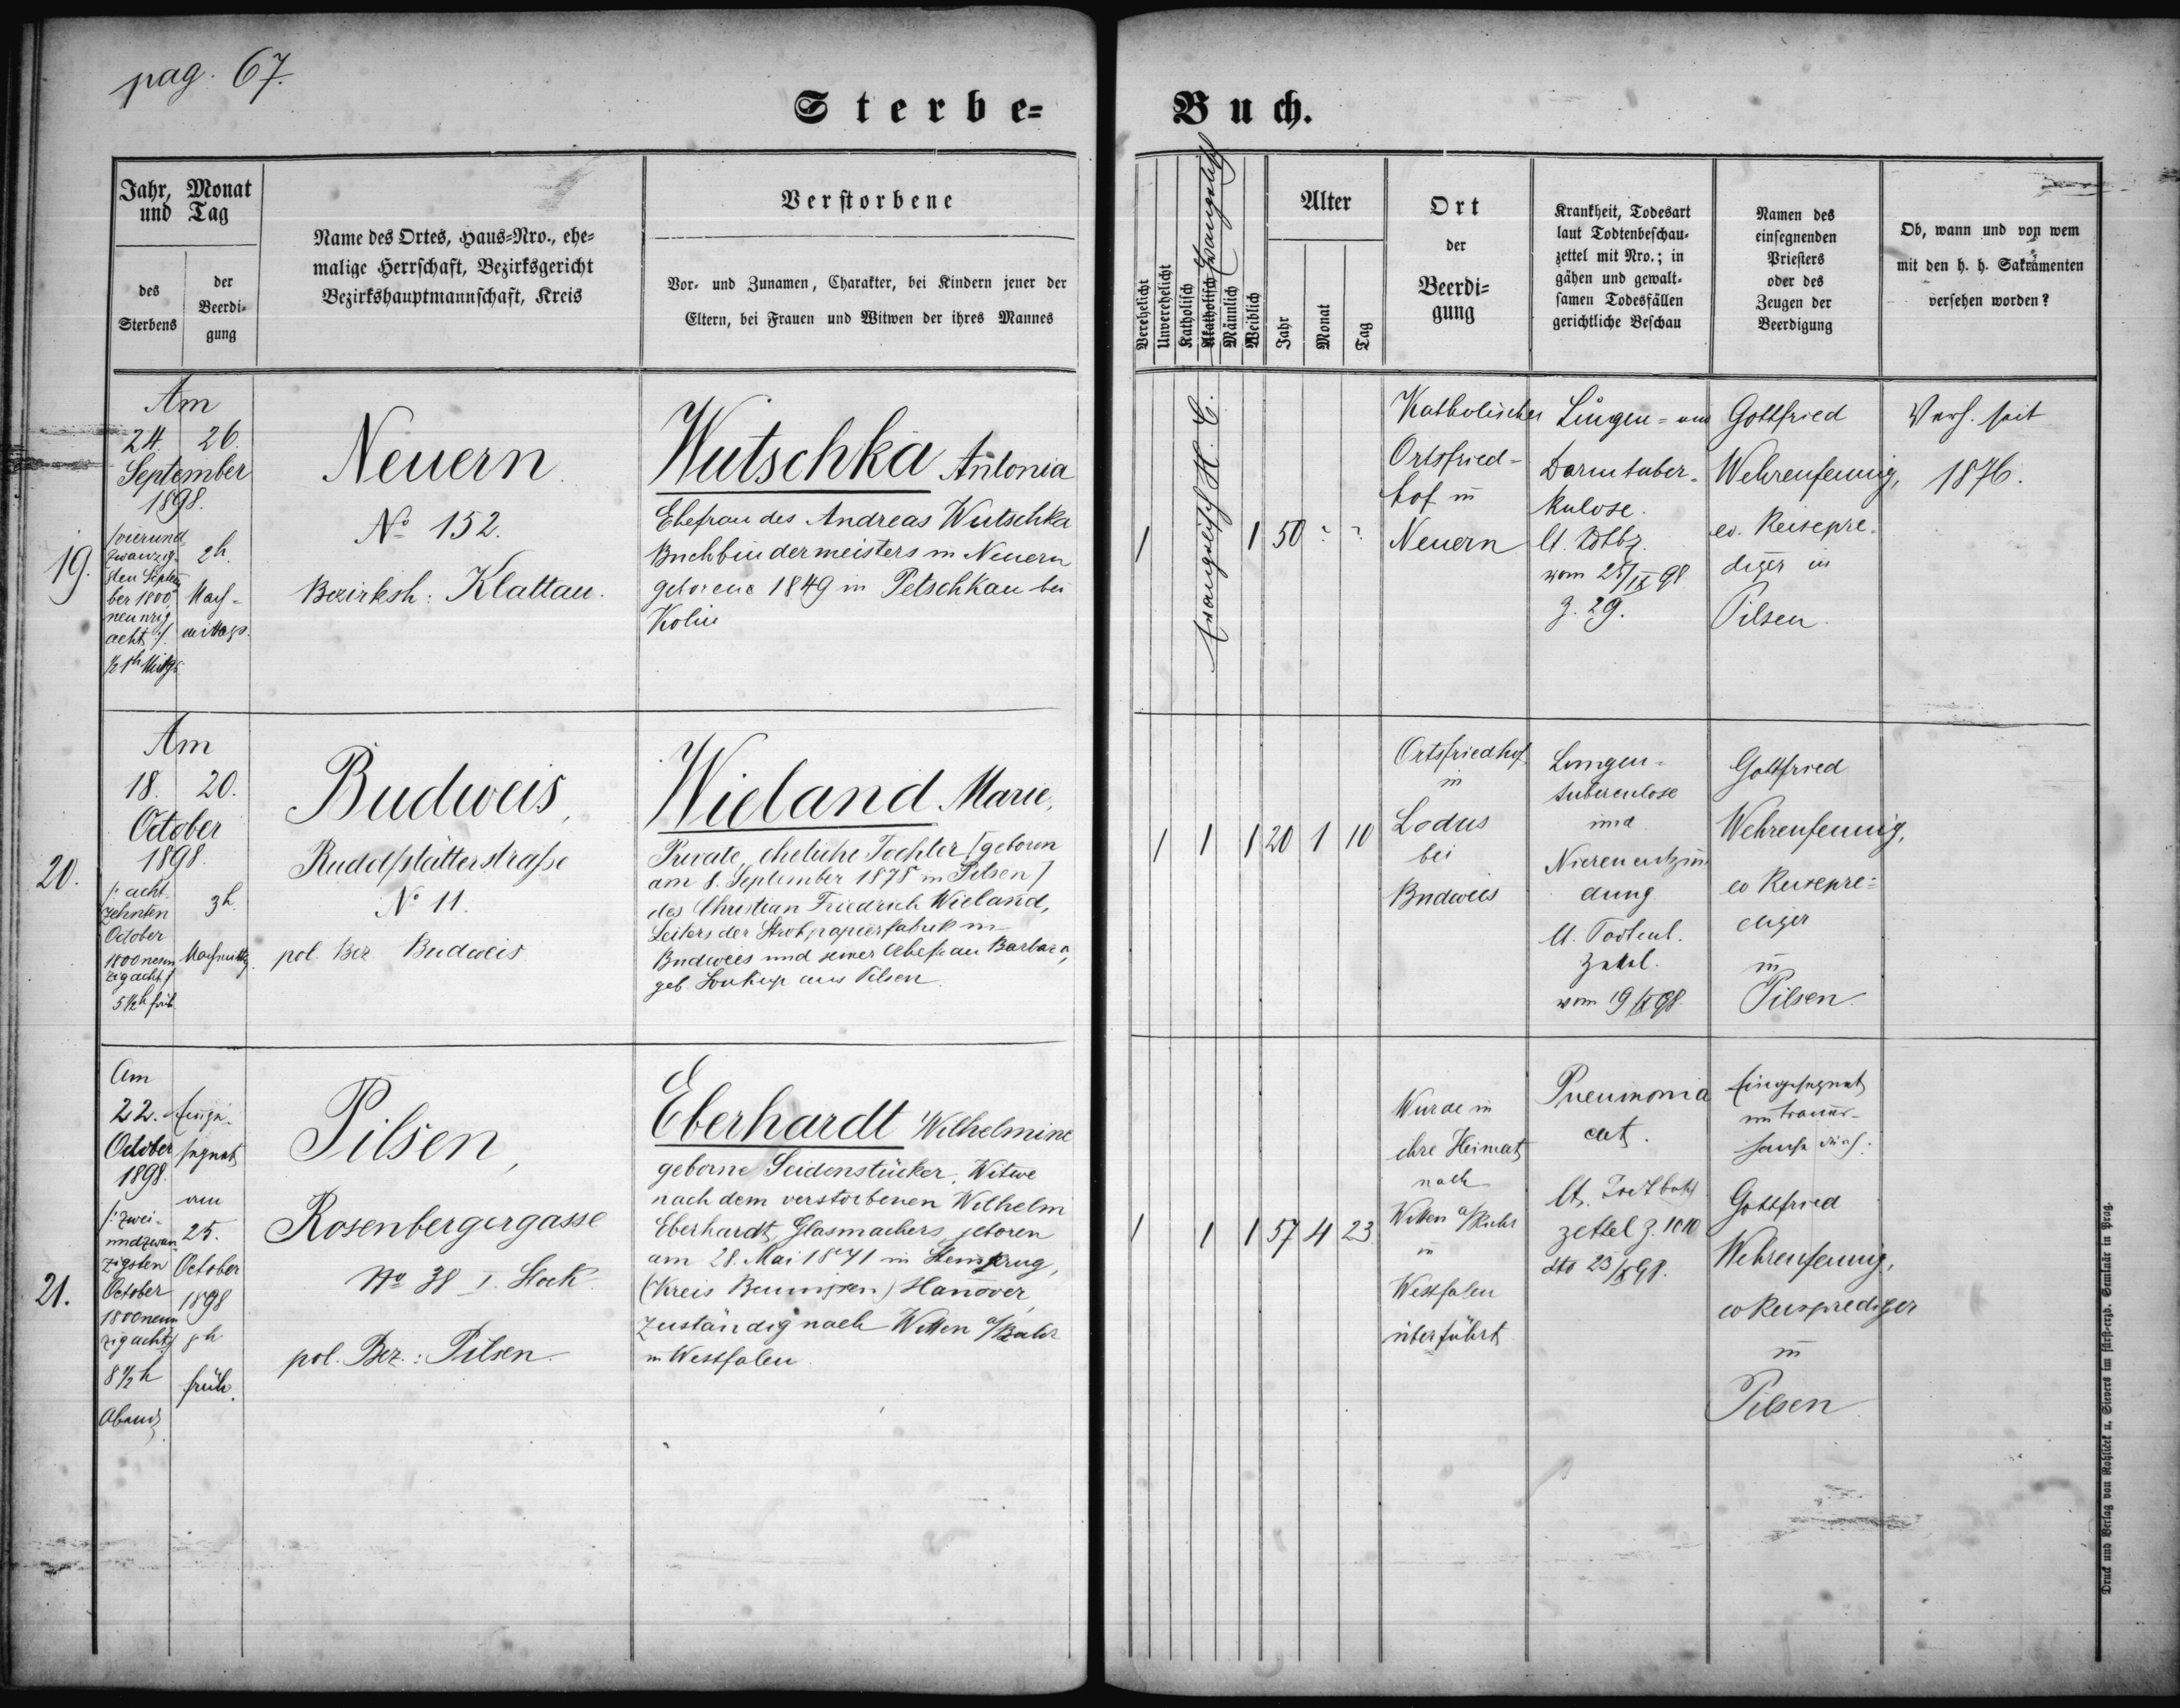 pag. 67.
Sterbe=
Buch.
Jahr, Monat
und Tag
des
Sterbens
der
Beerdi-
gung
Name des Ortes, Haus-Nro., ehe-
malige Herrschaft, Bezirksgericht
Bezirkshauptmannschaft, Kreis
Verstorbene
Vor- und Zunamen, Charakter, bei Kindern jener der
Eltern, bei Frauen und Witwen der ihres Mannes
Verehelicht
Unverehelicht
Katholisch
Akatholisch
Evangelisch
Männlich
Weiblich
Alter
Jahr
Monat
Tag
Ort
der
Beerdi-
gung
Krankheit, Todesart
laut Todtenbeschau-
zettel mit Nro.; in
gähen und gewalt-
samen Todesfällen
gerichtliche Beschau
Namen des
einsegnenden
Priesters
oder des
Zeugen der
Beerdigung
Ob, wann und von wem
mit den h. h. Sakramenten
versehen worden?
19.
Am
24. 26.
September
1898.
vierund
zwanzig-
sten Septem
ber 1800
neunzig
acht
2h
Nach-
mittags.
Neuern
No 152.
Bezirksh: Klattau.
Wutschka Antonia
Ehefrau des Andreas Wutschka
Buchbindermeisters in Neuern
geborene 1849 in Petschkau bei
Kolin
1
Evangelisch H. C.
1 50 ? ?
Katholischer
Ortsfried-
hof in
Neuern
Lungen- und
Darmtuber-
kulose.
lt.
vom 25/IX 98
Z. 29.
Gottfried
Wehrenfennig,
ev. Reisepre-
diger in
Pilsen.
Verh. seit
1876.
20.
Am
18. 20.
October
1898.
/: acht
zehnten
October
1800 neun
zig acht
5 1/2 h früh
3h
Nachmittg.
Budweis,
Rudolfstätterstraße
No 11.
pol. Bez. Budweis
Wieland Marie,
Private, eheliche Tochter [geboren
am 8. September 1878 in Pilsen]
des Christian Friedrich Wieland,
Leiters der Strohpapierfabrik in
Budweis und seiner Ehefrau Barbara,
geb. Soukup aus Pilsen.
1 1 1 20 1 10
Ortsfriedhof
in
Lodus
bei
Budweis
Lungen-
tuberculose
und
Nierenentzün
dung
lt. Todtenb.
Zettel.
vom 19/X 98.
Gottfried
Wehrenfennig,
ev Reisepre-
diger
in
Pilsen.
21.
Am
22.
October
1898.
/: zwei-
undzwan
zigsten
October
1800 neun
zig acht
8 1/2 h
Abends
Einge-
segnet
am
25.
October
1898
früh.
Pilsen,
Rosenbergergasse
No 38 I. Stock
pol. Bez.: Pilsen.
Eberhardt Wilhelmine
geborne Seidenstücker, Witwe
nach dem verstorbenen Wilhelm
Eberhardt, Glasmachers, geboren
am 28. Mai 1841 in
(Kreis) Hannover,
zuständig nach Witten a/Ruhr
in Westfalen.
1 1 1 57 4 23
Wurde in
ihre Heimat
nach
Witten a/Ruhr
in
Westfalen
überführt
Pneumonia
cat.
lt.
zettel Z. 1010
dto 23/X 98.
Eingesegnet
im Trauer-
hause durch:
Gottfried
Wehrenfennig,
ev Reiseprediger
in
Pilsen
Druck und Verlag von Rohliček u. Sievers im fürst-erzb. Seminär in Prag.